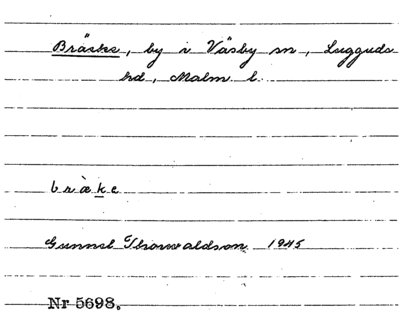 Bräcke, by i Väsby sn, Luggude
hd, Malm l.
bràke
Gunnel Thorwaldson 1945
Nr 5698.